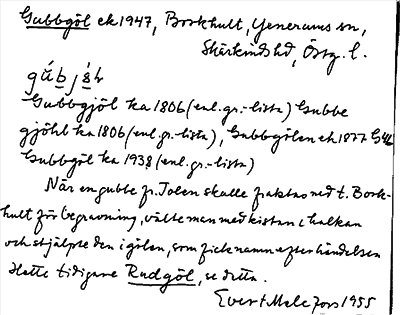 Gubbgöl ek 1947, Borkhult, Yxnerums sn,
Skärkinds hd, Östg. l.
Gubbgjöl ka 1806 (enl. gr.-lista) Gubbe
gjöhl ka 1806 (enl. gr.-lista), Gubbgölen ek 1877 G46
Gubbgöl ka 1938 (enl. gr.-lista)
När en gubbe fr. Tolen skulle fraktas ned t. Bork-
hult för begravning, välte man med kistan i halkan
och stjälpte den i gölen, som fick namn efter händelsen
Hette tidigare Rudgöl, se detta.
Evert Melefors 1955